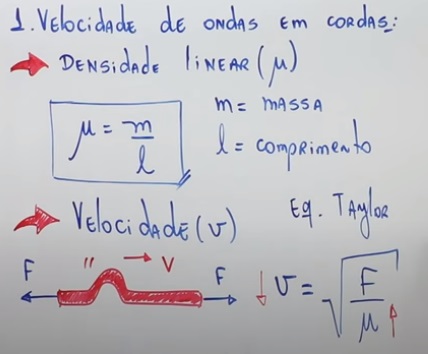 1. VELOCIDADE DE ONDAS EM CORDAS:
DENSIDADE LINEAR (μ)
μ = m/l
m = MASSA
l = COMPRIMENTO
VELOCIDADE (v)
EQ. TAYLOR
F " → V F
↓ v = √(F/μ) ↑